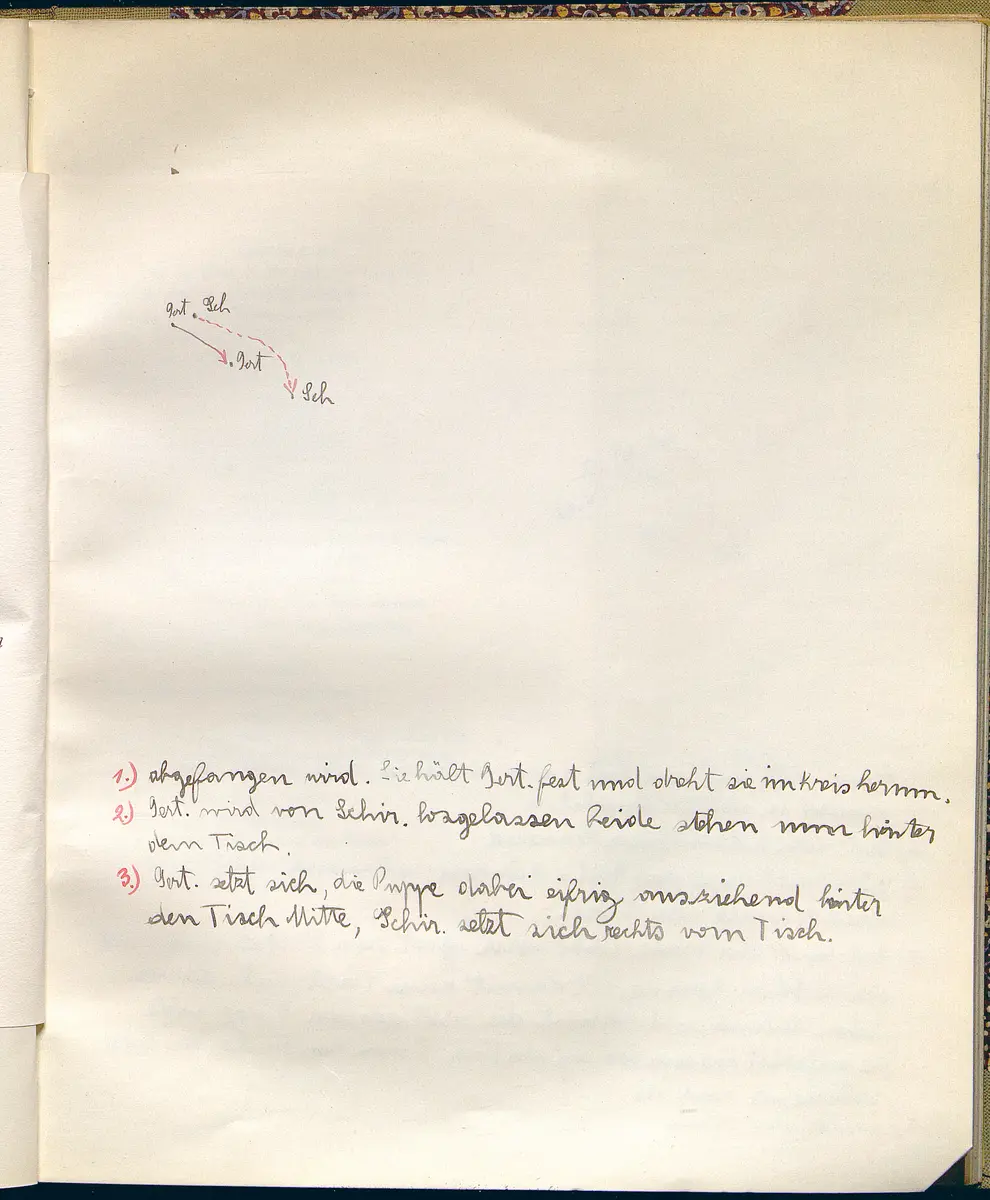 Gert. Sch
Gert
Sch
1.) abgefangen wird. Sie hält Gert. fest und dreht sie im kreis herum.
2.) Gert. wird von Schir. losgelassen beide stehen nun hinter
dem Tisch.
3.) Gert. setzt sich, die Puppe dabei eifrig ausziehend hinter
den Tisch Mitte, Schir. setzt sich rechts vom Tisch.